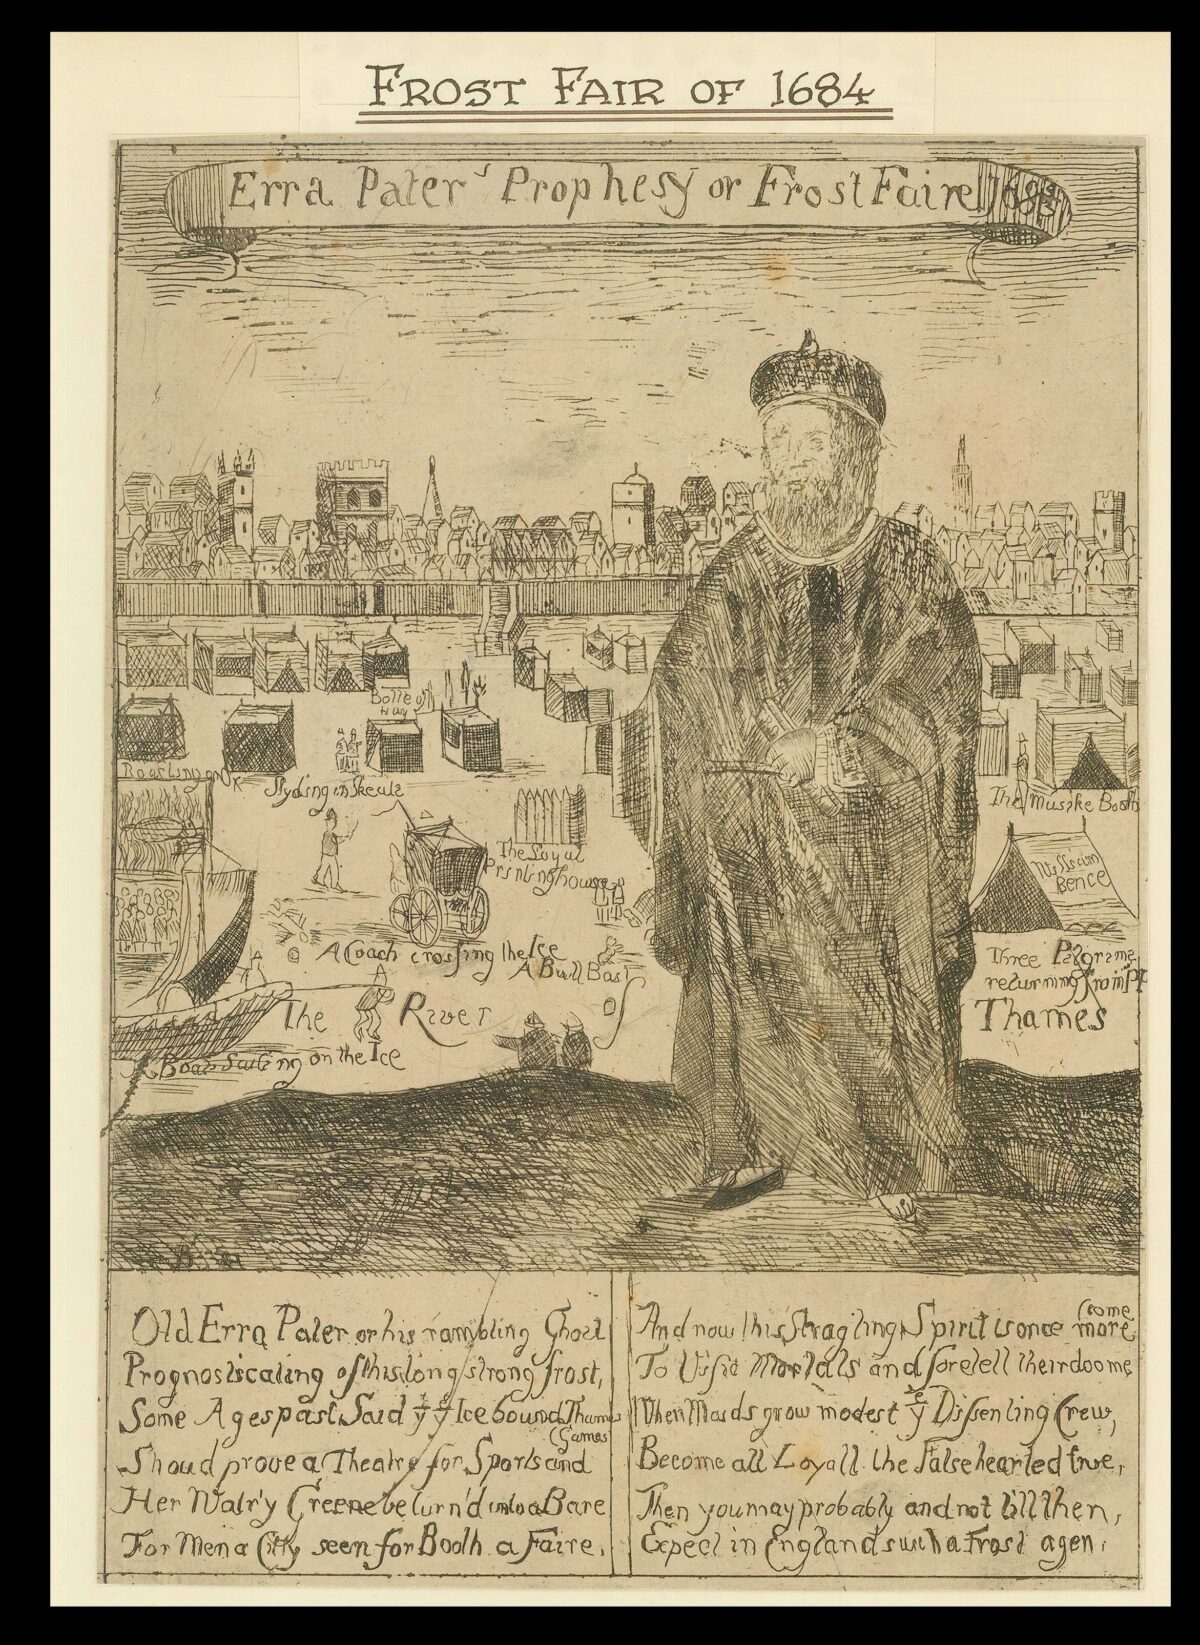 FROST FAIR OF 1684
Erra Pater's Prophesy or Frost Faire 168
Roasting an Ox
Slyding in Skeats
The Loyal
Printing house
The Musike Booth
A Coach crossing the Ice
A Bull Bait
Three
returning from
The River of Thames
A Boat Sailing on the Ice
Old Erra Pater or his rambling Ghost
Prognosticating of this long strong frost,
Some Ages past Said yt ye Ice bound Thames
Shoud prove a Theatre for Sports and (Games
Her Wat'ry Greene be turn'd into a Bare
For Men a Citty seen for Booth a Faire,
And now this Stragling Spirit is once more (come
To Visit Mortals and foretell their doome
When Maids grow modest ye Dissenting Crew,
Become all Loyall the Falsehearted true,
Then you may probably and not till then,
Expect in England such a Frost agen.